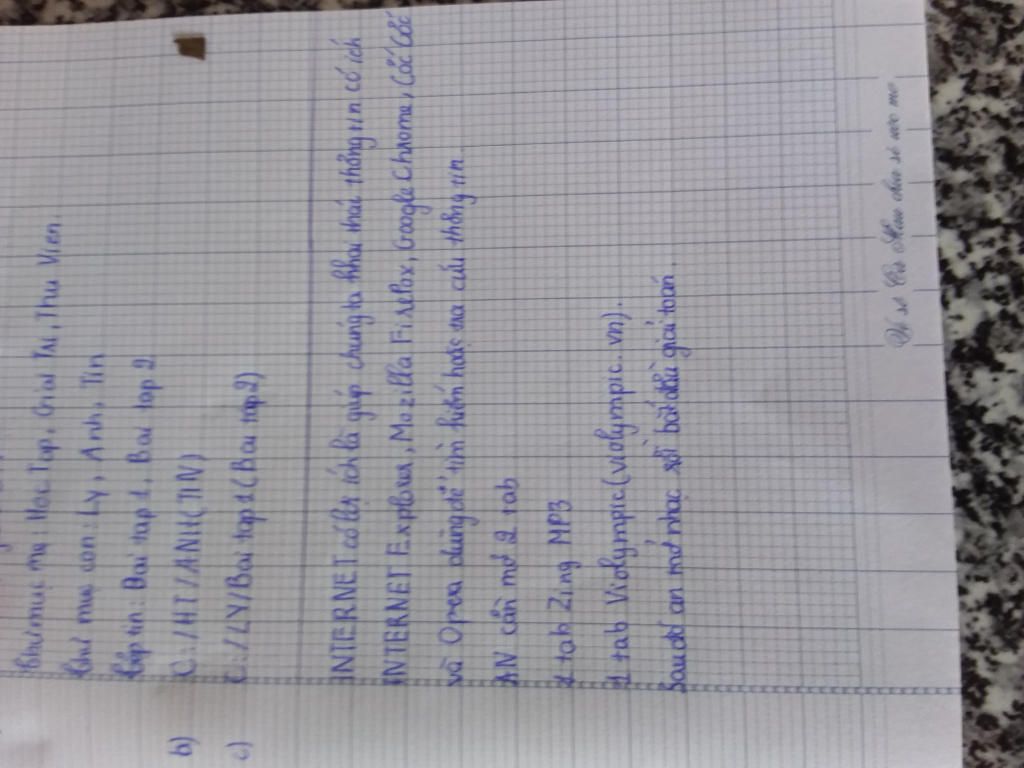 thư mục mẹ: Hoc Tap, Giai Tri, Thu Vien.
thư mục con: Ly, Anh, Tin
tệp tin: Bai tap 1, Bai tap 2
b) C:/HT/ANH(TIN)
c) C:/LY/Bai tap 1 (Bai tap 2)
INTERNET có lợi ích là giúp chúng ta khai thác thông tin có ích
INTERNET Explorer, Mozilla Firefox, Google Chrome, Cốc Cốc
và Opera dùng để tìm kiếm hoặc tra cứu thông tin.
AN cần mở 2 tab
1 tab Zing MP3
1 tab Violympic (violympic.vn).
Sau đó an mở nhạc rồi bắt đầu giải toán.
Vở sẽ